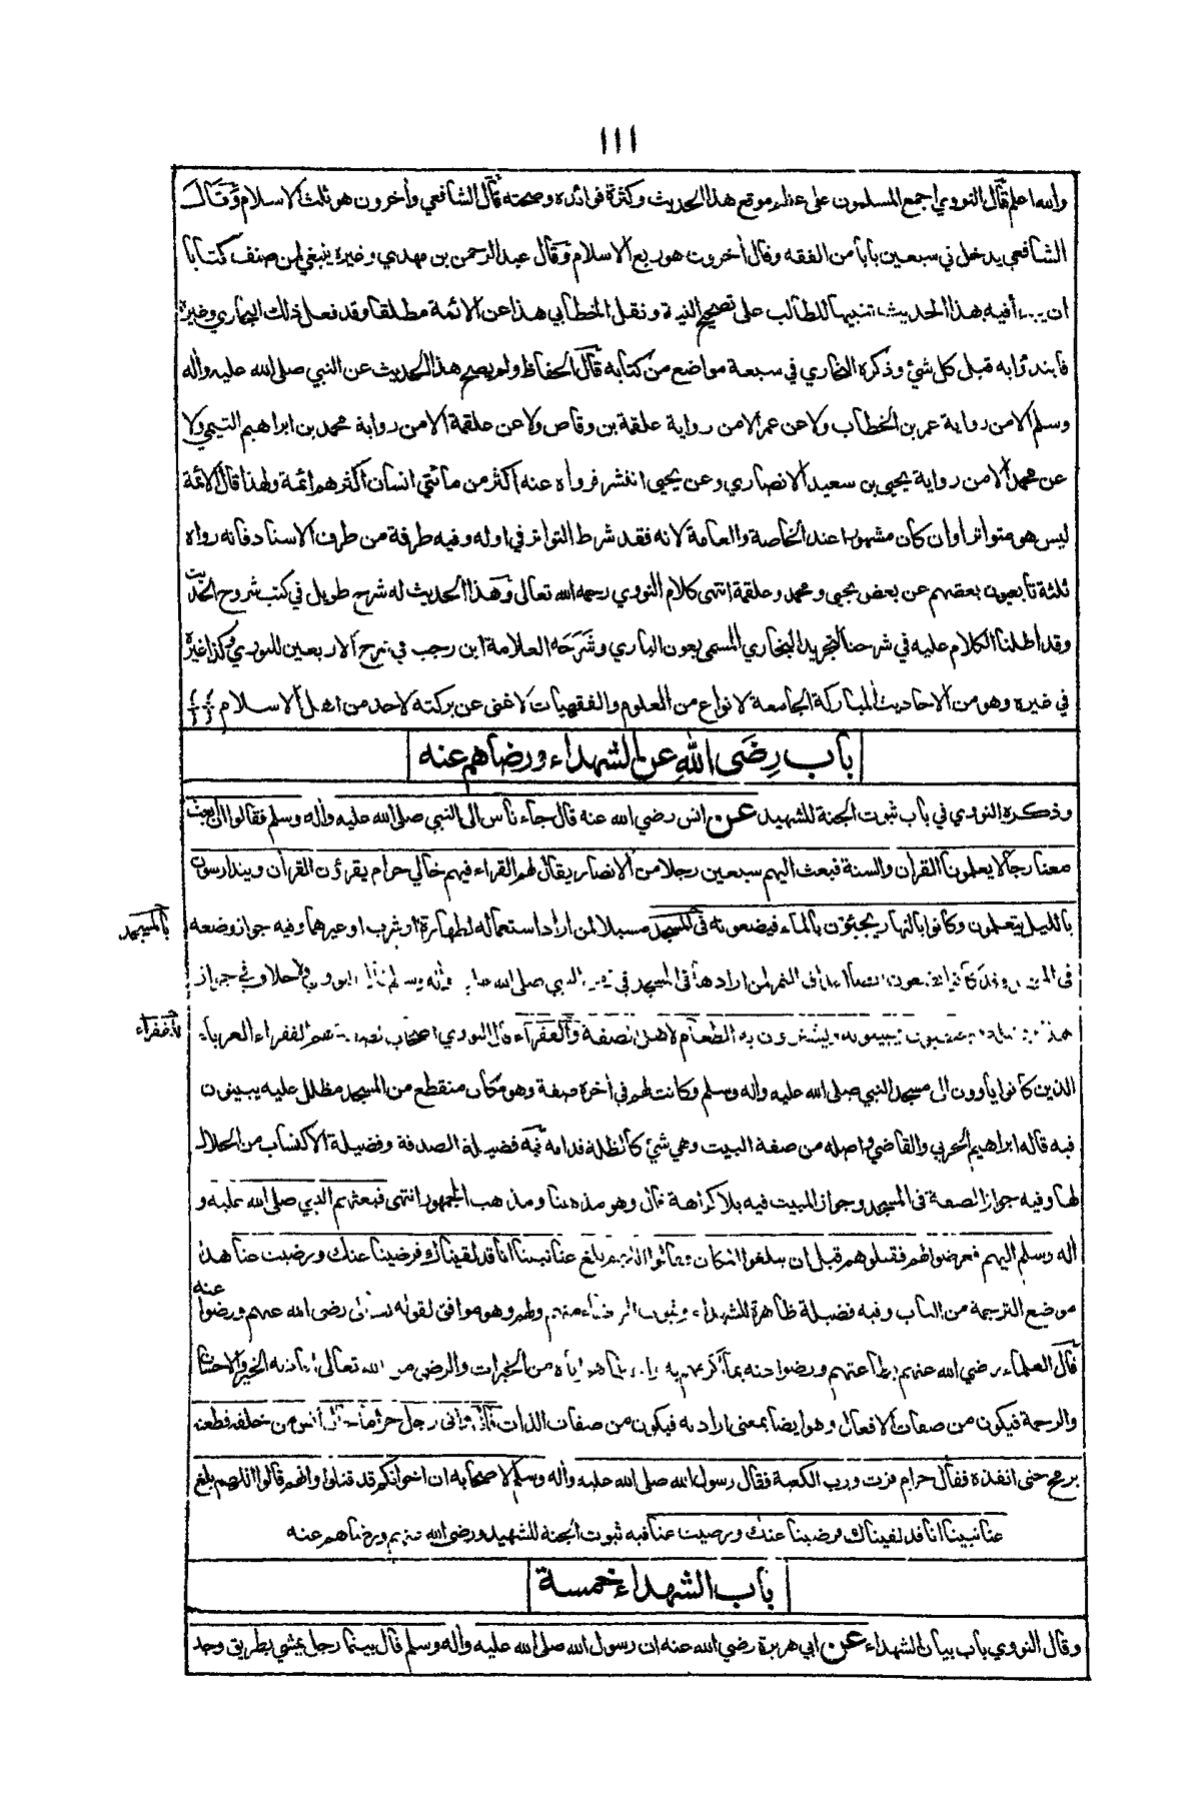 ١١١
والله اعلم قال النووي اجمع المسلمون على عظم موقع هذا الحديث وكثرة فوائده وصحته قال الشافعي وأخرون هو ثلث الاسلام وقال
الشافعي يدخل في سبعين بابا من الفقه وقال أخرون هو ربع الاسلام وقال عبد الرحمن بن مهدي وغيره ينبغي لمن صنف كتابا
ان يبدأ فيه بهذا الحديث تنبيها للطالب على تصحيح النية ونقل الخطابي هذا عن الائمة مطلقا وقد فعل ذلك البخاري وغيره
فابتدؤا به قبل كل شئ وذكره البخاري في سبعة مواضع من كتابه قال الحفاظ ولم يصح هذا الحديث عن النبي صلى الله عليه واله
وسلم الا من رواية عمر بن الخطاب ولا عن عمر الا من رواية علقمة بن وقاص ولا عن علقمة الا من رواية محمد بن ابراهيم التيمي ولا
عن محمد الا من رواية يحيى بن سعيد الانصاري وعن يحيى انتشر فرواه عنه اكثر من مائتي انسان اكثرهم ائمة ولهذا قال الائمة
ليس هو متواترا وان كان مشهورا عند الخاصة والعامة لانه فقد شرط التواتر في اوله وفيه طرفة من طرف الاسناد فانه رواه
ثلثة تابعيون بعضهم عن بعض يحيى ومحمد وعلقمة انتهى كلام النووي رحمه الله تعالى وهذا الحديث له شرح طويل في كتب شروح الحديث
وقد اطلنا الكلام عليه في شرحنا لتجريد البخاري المسمى بعون الباري وشرحه العلامة ابن رجب في شرح الاربعين للنووي وكذا غيره
في غيره وهو من الاحاديث المباركة الجامعة لانواع من العلوم والفقهيات لا غنى عن بركته لاحد من اهل الاسلام
باب رضى الله عن الشهداء ورضاهم عنه
وذكره النووي في باب ثبوت الجنة للشهيد عن انس رضي الله عنه قال جاء ناس الى النبي صلى الله عليه واله وسلم فقالوا ان ابعث
معنا رجالا يعلمونا القران والسنة فبعث اليهم سبعين رجلا من الانصار يقال لهم القراء فيهم خالي حرام يقرؤن القران ويتدارسون
بالليل يتعلمون وكانوا بالنهار يجيئون بالماء فيضعونه في المسجد مسبلا لمن اراد استعماله لطهارة او شرب او غيرهما وفيه جواز وضعه
بالمسجد
في المسجد وقد كانوا يضعون ايضا التمر لمن ارادها في المسجد في زمن النبي صلى الله عليه واله وسلم قال النووي ولا خلاف في جواز
هذا ويحتطبون فيبيعونه ويشترون به الطعام لاهل الصفة والفقراء قال النووي اصحاب الصفة هم الفقراء الغرباء
بالفقراء
الذين كانوا يأوون الى مسجد النبي صلى الله عليه واله وسلم وكانت لهم في أخره صفة وهو مكان منقطع من المسجد مظلل عليه يبيتون
فيه قاله ابراهيم الحربي والقاضي واصله من صفة البيت وهي شئ كالظلة قدامه فيه فضيلة الصدقة وفضيلة الاكتساب من الحلال
لها وفيه جواز الصفة في المسجد وجواز المبيت فيه بلا كراهة قال وهو مذهبنا ومذهب الجمهور انتهى فبعثهم النبي صلى الله عليه و
اله وسلم اليهم فعرضوا لهم فقتلوهم قبل ان يبلغوا المكان فقالوا اللهم بلغ عنا نبينا انا قد لقيناك فرضينا عنك ورضيت عنا هذا
موضع الترجمة من الباب وفيه فضيلة ظاهرة للشهداء وثبوت الرضاء منهم ولهم وهو موافق لقوله تعالى رضى الله عنهم ورضوا عنه
قال العلماء رضي الله عنهم بطاعتهم ورضوا عنه بما اكرمهم به واعطاهم اياه من الخيرات والرضى من الله تعالى افاضة الخير والاحسان
والرحمة فيكون من صفات الافعال وهو ايضا بمعنى ارادته فيكون من صفات الذات قال واتى رجل حراما خال انس من خلفه فطعنه
برمح حتى انفذه فقال حرام فزت ورب الكعبة فقال رسول الله صلى الله عليه واله وسلم لاصحابه ان اخوانكم قد قتلوا وانهم قالوا اللهم بلغ
عنا نبينا انا قد لقيناك فرضينا عنك ورضيت عنا فيه ثبوت الجنة للشهيد ورضي الله عنهم ورضاهم عنه
باب الشهداء خمسة
وقال النووي باب بيان الشهداء عن ابي هريرة رضي الله عنه ان رسول الله صلى الله عليه واله وسلم قال بينما رجل يمشي بطريق وجد